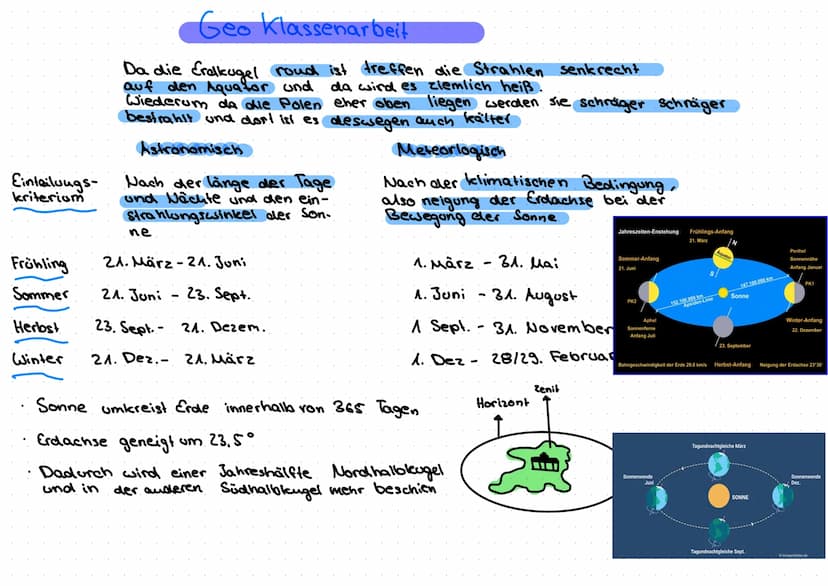 Geo Klassenarbeit
Da die Erdkugel rund ist treffen die Strahlen senkrecht
auf den Äquator und da wird es ziemlich heiß.
Wiederum da die Polen eher oben liegen werden sie schräger schräger
bestrahlt und dort ist es deswegen auch kälter
Astronomisch
Meteorlogisch
Einteilungs-
kriterium
Nach der länge der Tage
und Nächte und den ein-
strahlungswinkel der Son-
ne
Nach der klimatischen Bedingung,
also neigung der Erdachse bei der
Bewegung der Sonne
Frühling 21. März - 21. Juni 1. März - 31. Mai
Sommer 21. Juni - 23. Sept. 1. Juni - 31. August
Herbst 23. Sept. - 21. Dezem. 1 Sept. - 31. November
Winter 21. Dez. - 21. März 1. Dez - 28/29. Februar
· Sonne umkreist Erde innerhalb von 365 Tagen
· Erdachse geneigt um 23,5°
· Dadurch wird einer Jahreshälfte Nordhalbkugel
und in der anderen Südhalbkugel mehr beschien
Zenit
Horizont
Jahreszeiten-Entstehung
Frühlings-Anfang
21. März
N
S
Sommer-Anfang
21. Juni
Perihel
Sonnennähe
Anfang Januar
PK1
147.100.000 km
152.100.000 km
Apsiden-Linie
Sonne
PK2
Aphel
Sonnenferne
Anfang Juli
Winter-Anfang
22. Dezember
23. September
Bahngeschwindigkeit der Erde 29.8 km/s
Herbst-Anfang
Neigung der Erdachse 23°30'
Tagundnachtgleiche März
Sonnenwende
Juni
Sonnenwende
Dez.
SONNE
Tagundnachtgleiche Sept.